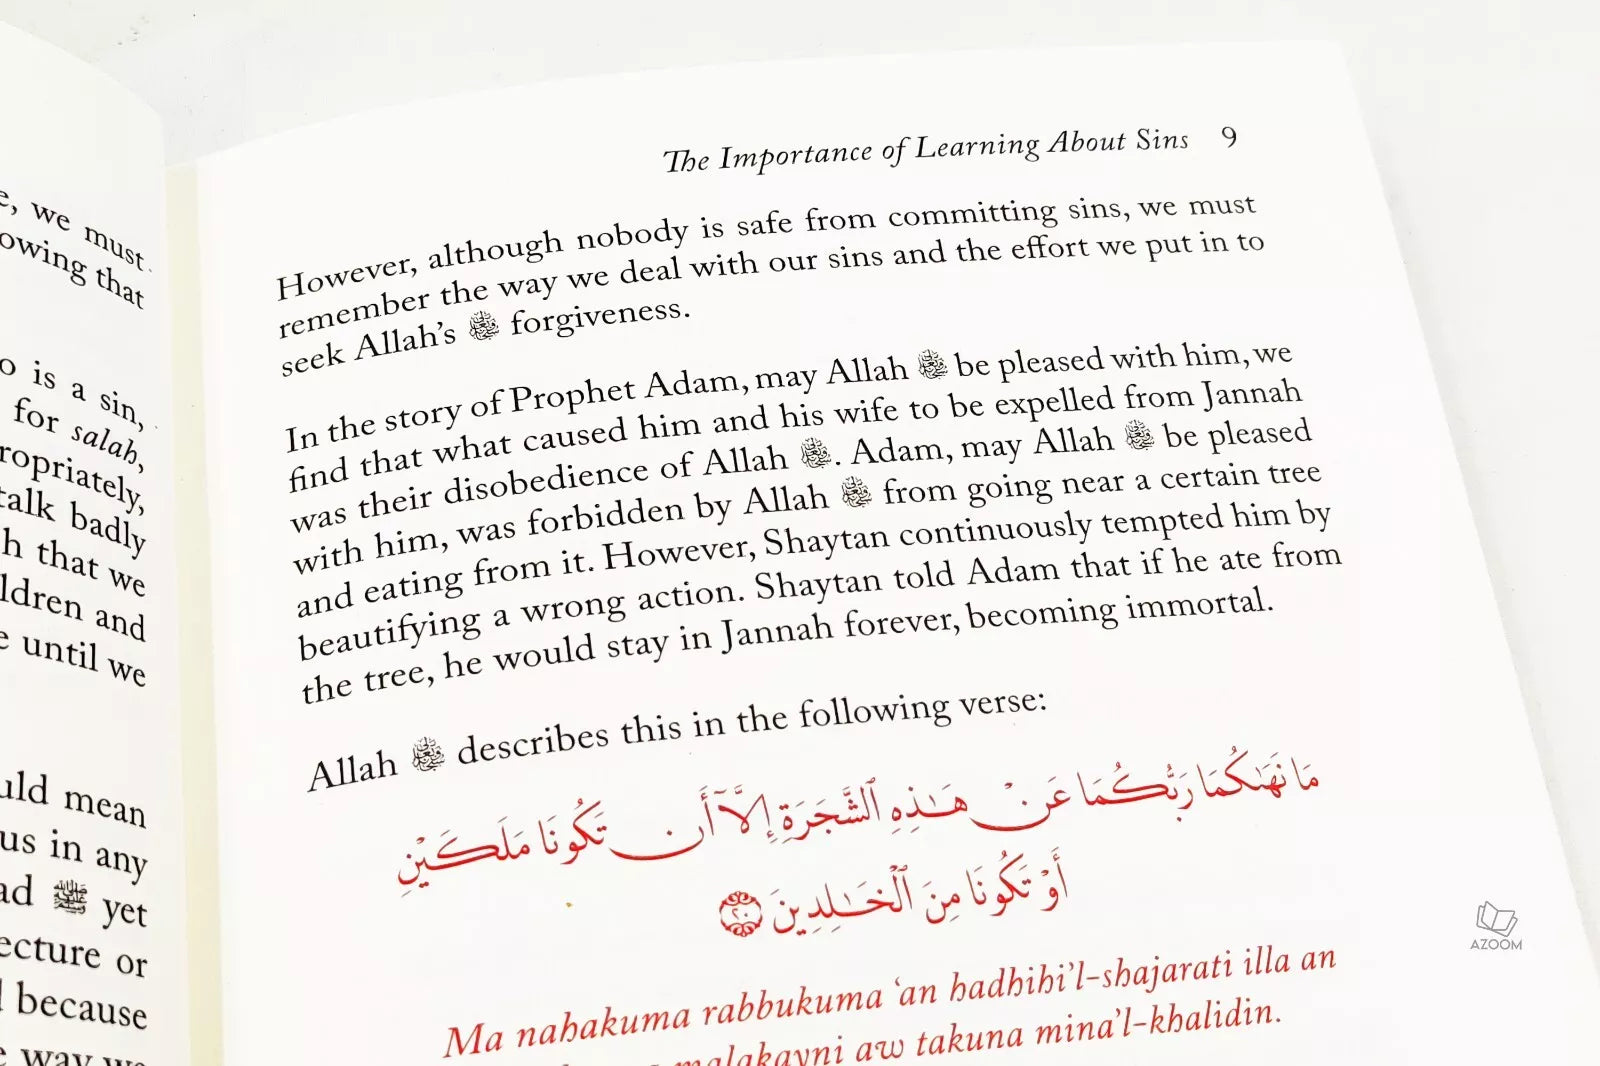 e, we must
owing that
o is a sin,
for salah,
ropriately,
talk badly
h that we
ldren and
e until we
uld mean
us in any
ad ﷺ yet
ecture or
because
e way we
The Importance of Learning About Sins 9
However, although nobody is safe from committing sins, we must
remember the way we deal with our sins and the effort we put in to
seek Allah's forgiveness.
In the story of Prophet Adam, may Allah be pleased with him, we
find that what caused him and his wife to be expelled from Jannah
was their disobedience of Allah . Adam, may Allah be pleased
with him, was forbidden by Allah from going near a certain tree
and eating from it. However, Shaytan continuously tempted him by
beautifying a wrong action. Shaytan told Adam that if he ate from
the tree, he would stay in Jannah forever, becoming immortal.
Allah describes this in the following verse:
مَا نَهَىٰكُمَا رَبُّكُمَا عَنْ هَـٰذِهِ ٱلشَّجَرَةِ إِلَّآ أَن تَكُونَا مَلَكَيْنِ
أَوْ تَكُونَا مِنَ ٱلْخَـٰلِدِينَ ٢٠
Ma nahakuma rabbukuma 'an hadhihi'l-shajarati illa an
malakayni aw takuna mina'l-khalidin.
AZOOM